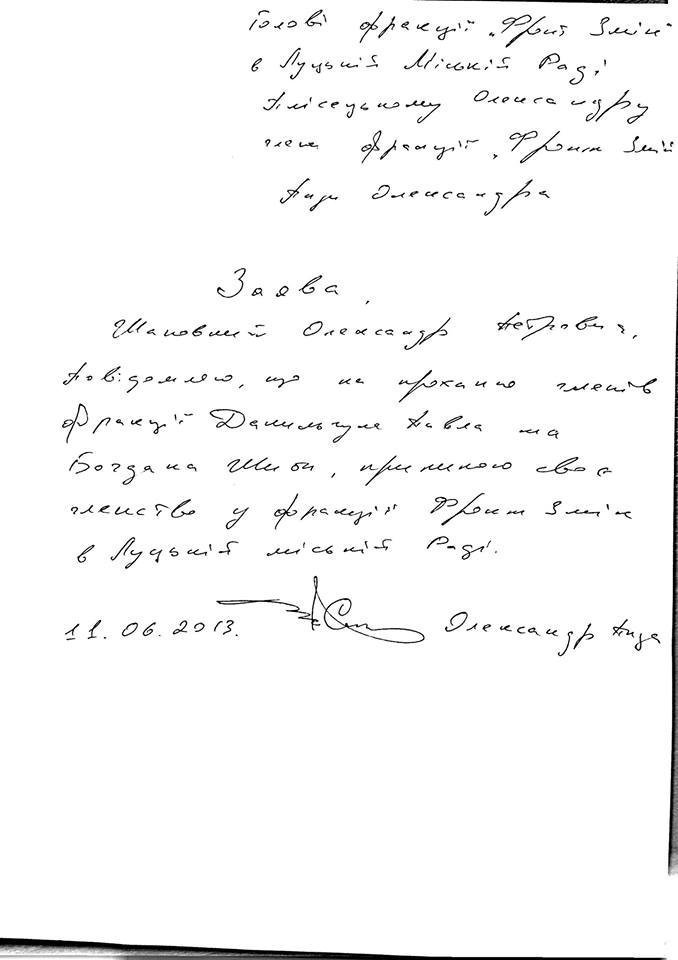 Голові фракції „Фронт Змін"
в Луцькій Міській Раді
Плісецькому Олександру
члена фракції „Фронт Змін
Пиди Олександра
Заява,
Шановний Олександр Петрович,
повідомляю, що на прохання членів
фракції Данильчука Павла та
Богдана Шиби, припиняю своє
членство у фракції Фронт Змін
в Луцькій міській Раді.
11.06.2013. Олександр Пида